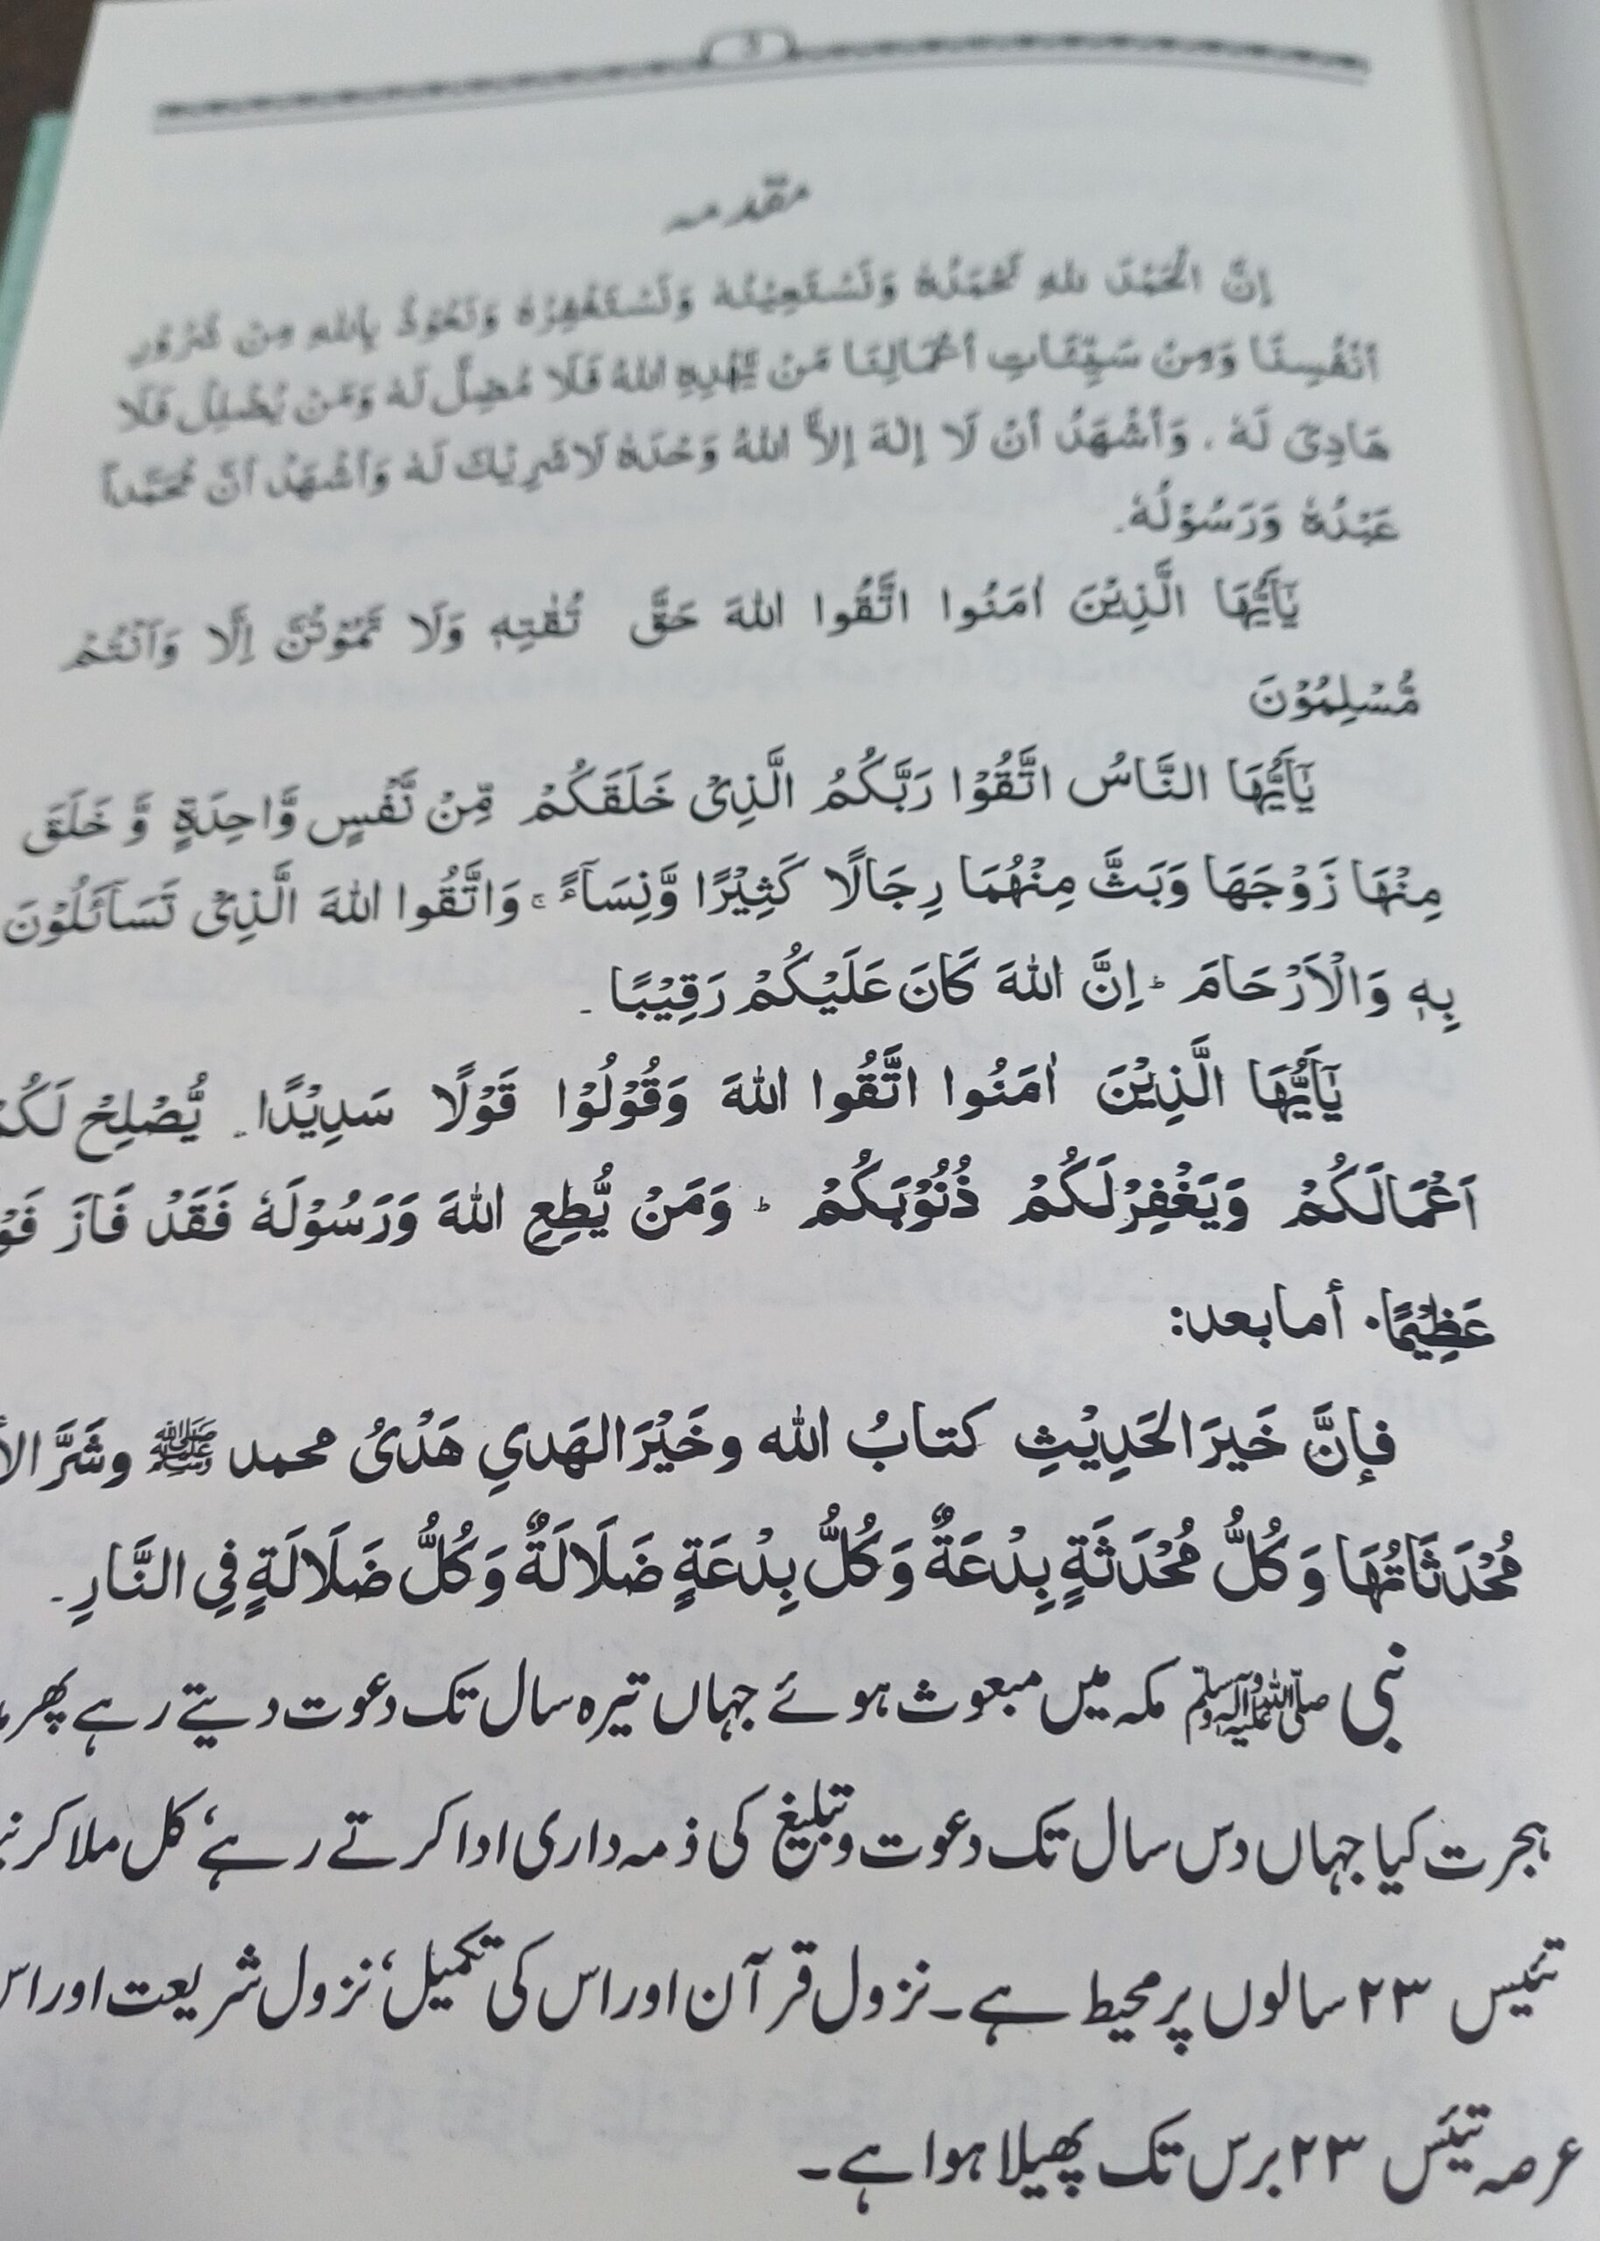 3
مقدمہ
إِنَّ الْحَمْدَ لِلهِ نَحْمَدُهٗ وَنَسْتَعِيْنُهٗ وَنَسْتَغْفِرُهٗ وَنَعُوْذُ بِاللهِ مِنْ شُرُوْرِ
أَنْفُسِنَا وَمِنْ سَيِّئَاتِ أَعْمَالِنَا مَنْ يَّهْدِهِ اللهُ فَلَا مُضِلَّ لَهٗ وَمَنْ يُضْلِلْ فَلَا
هَادِيَ لَهٗ ، وَأَشْهَدُ أَنْ لَا إِلٰهَ إِلاَّ اللهُ وَحْدَهٗ لَا شَرِيْكَ لَهٗ وَأَشْهَدُ أَنَّ مُحَمَّداً
عَبْدُهٗ وَرَسُوْلُهٗ۔
يٰٓاَيُّهَا الَّذِيْنَ اٰمَنُوا اتَّقُوا اللهَ حَقَّ تُقٰتِهٖ وَلَا تَمُوْتُنَّ اِلَّا وَاَنْتُمْ
مُّسْلِمُوْنَ
يٰٓاَيُّهَا النَّاسُ اتَّقُوْا رَبَّكُمُ الَّذِىْ خَلَقَكُمْ مِّنْ نَّفْسٍ وَّاحِدَةٍ وَّ خَلَقَ
مِنْهَا زَوْجَهَا وَبَثَّ مِنْهُمَا رِجَالًا كَثِيْرًا وَّنِسَآءً ۚ وَاتَّقُوا اللهَ الَّذِىْ تَسَآئَلُوْنَ
بِهٖ وَالْاَرْحَامَ ؕ اِنَّ اللهَ كَانَ عَلَيْكُمْ رَقِيْبًا ۔
يٰٓاَيُّهَا الَّذِيْنَ اٰمَنُوا اتَّقُوا اللهَ وَقُوْلُوْا قَوْلًا سَدِيْدًا۔ يُّصْلِحْ لَكُمْ
اَعْمَالَكُمْ وَيَغْفِرْلَكُمْ ذُنُوْبَكُمْ ؕ وَمَنْ يُّطِعِ اللهَ وَرَسُوْلَهٗ فَقَدْ فَازَ
عَظِيْمًا۔ أمابعد:
فإنَّ خَيرَ الحَدِيْثِ كتابُ الله وخَيْرَ الهَديِ هَدْیُ محمد ﷺ وشَرَّ
مُحْدَثَاتُهَا وَكُلُّ مُحْدَثَةٍ بِدْعَةٌ وَكُلُّ بِدْعَةٍ ضَلَالَةٌ وَكُلُّ ضَلَالَةٍ فِي النَّارِ۔
نبی صلی اللہ علیہ وآلہ وسلم مکہ میں مبعوث ہوئے جہاں تیرہ سال تک دعوت دیتے رہے پھر
ہجرت کیا جہاں دس سال تک دعوت وتبلیغ کی ذمہ داری ادا کرتے رہے، کل ملا کر
تئیس ۲۳ سالوں پر محیط ہے۔ نزول قرآن اور اس کی تکمیل، نزول شریعت اور اس
عرصہ تیئس ۲۳ برس تک پھیلا ہوا ہے۔